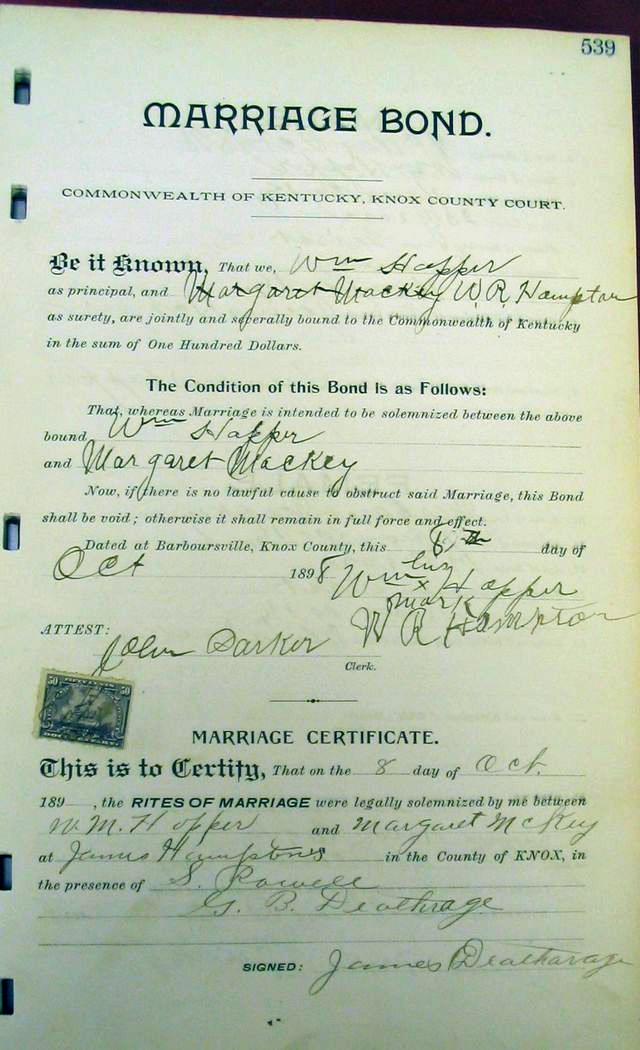 539
MARRIAGE BOND.
COMMONWEALTH OF KENTUCKY, KNOX COUNTY COURT.
Be it Known, That we, Wm Hopper
as principal, and Margaret Mackey W R Hampton
as surety, are jointly and severally bound to the Commonwealth of Kentucky
in the sum of One Hundred Dollars.
The Condition of this Bond is as Follows:
That, whereas Marriage is intended to be solemnized between the above
bound Wm Hopper
and Margaret Mackey
Now, if there is no lawful cause to obstruct said Marriage, this Bond
shall be void; otherwise it shall remain in full force and effect.
Dated at Barboursville, Knox County, this 8th day of
Oct 1898
Wm his x mark Hopper
W R Hampton
ATTEST:
John Parker
Clerk.
50 50
MARRIAGE CERTIFICATE.
This is to Certify, That on the 8 day of Oct.
189 , the RITES OF MARRIAGE were legally solemnized by me between
W. M. Hopper and Margaret McKey
at James Hampton's in the County of KNOX, in
the presence of S. Powell
G. B. Deathrage
SIGNED: James Deatharage